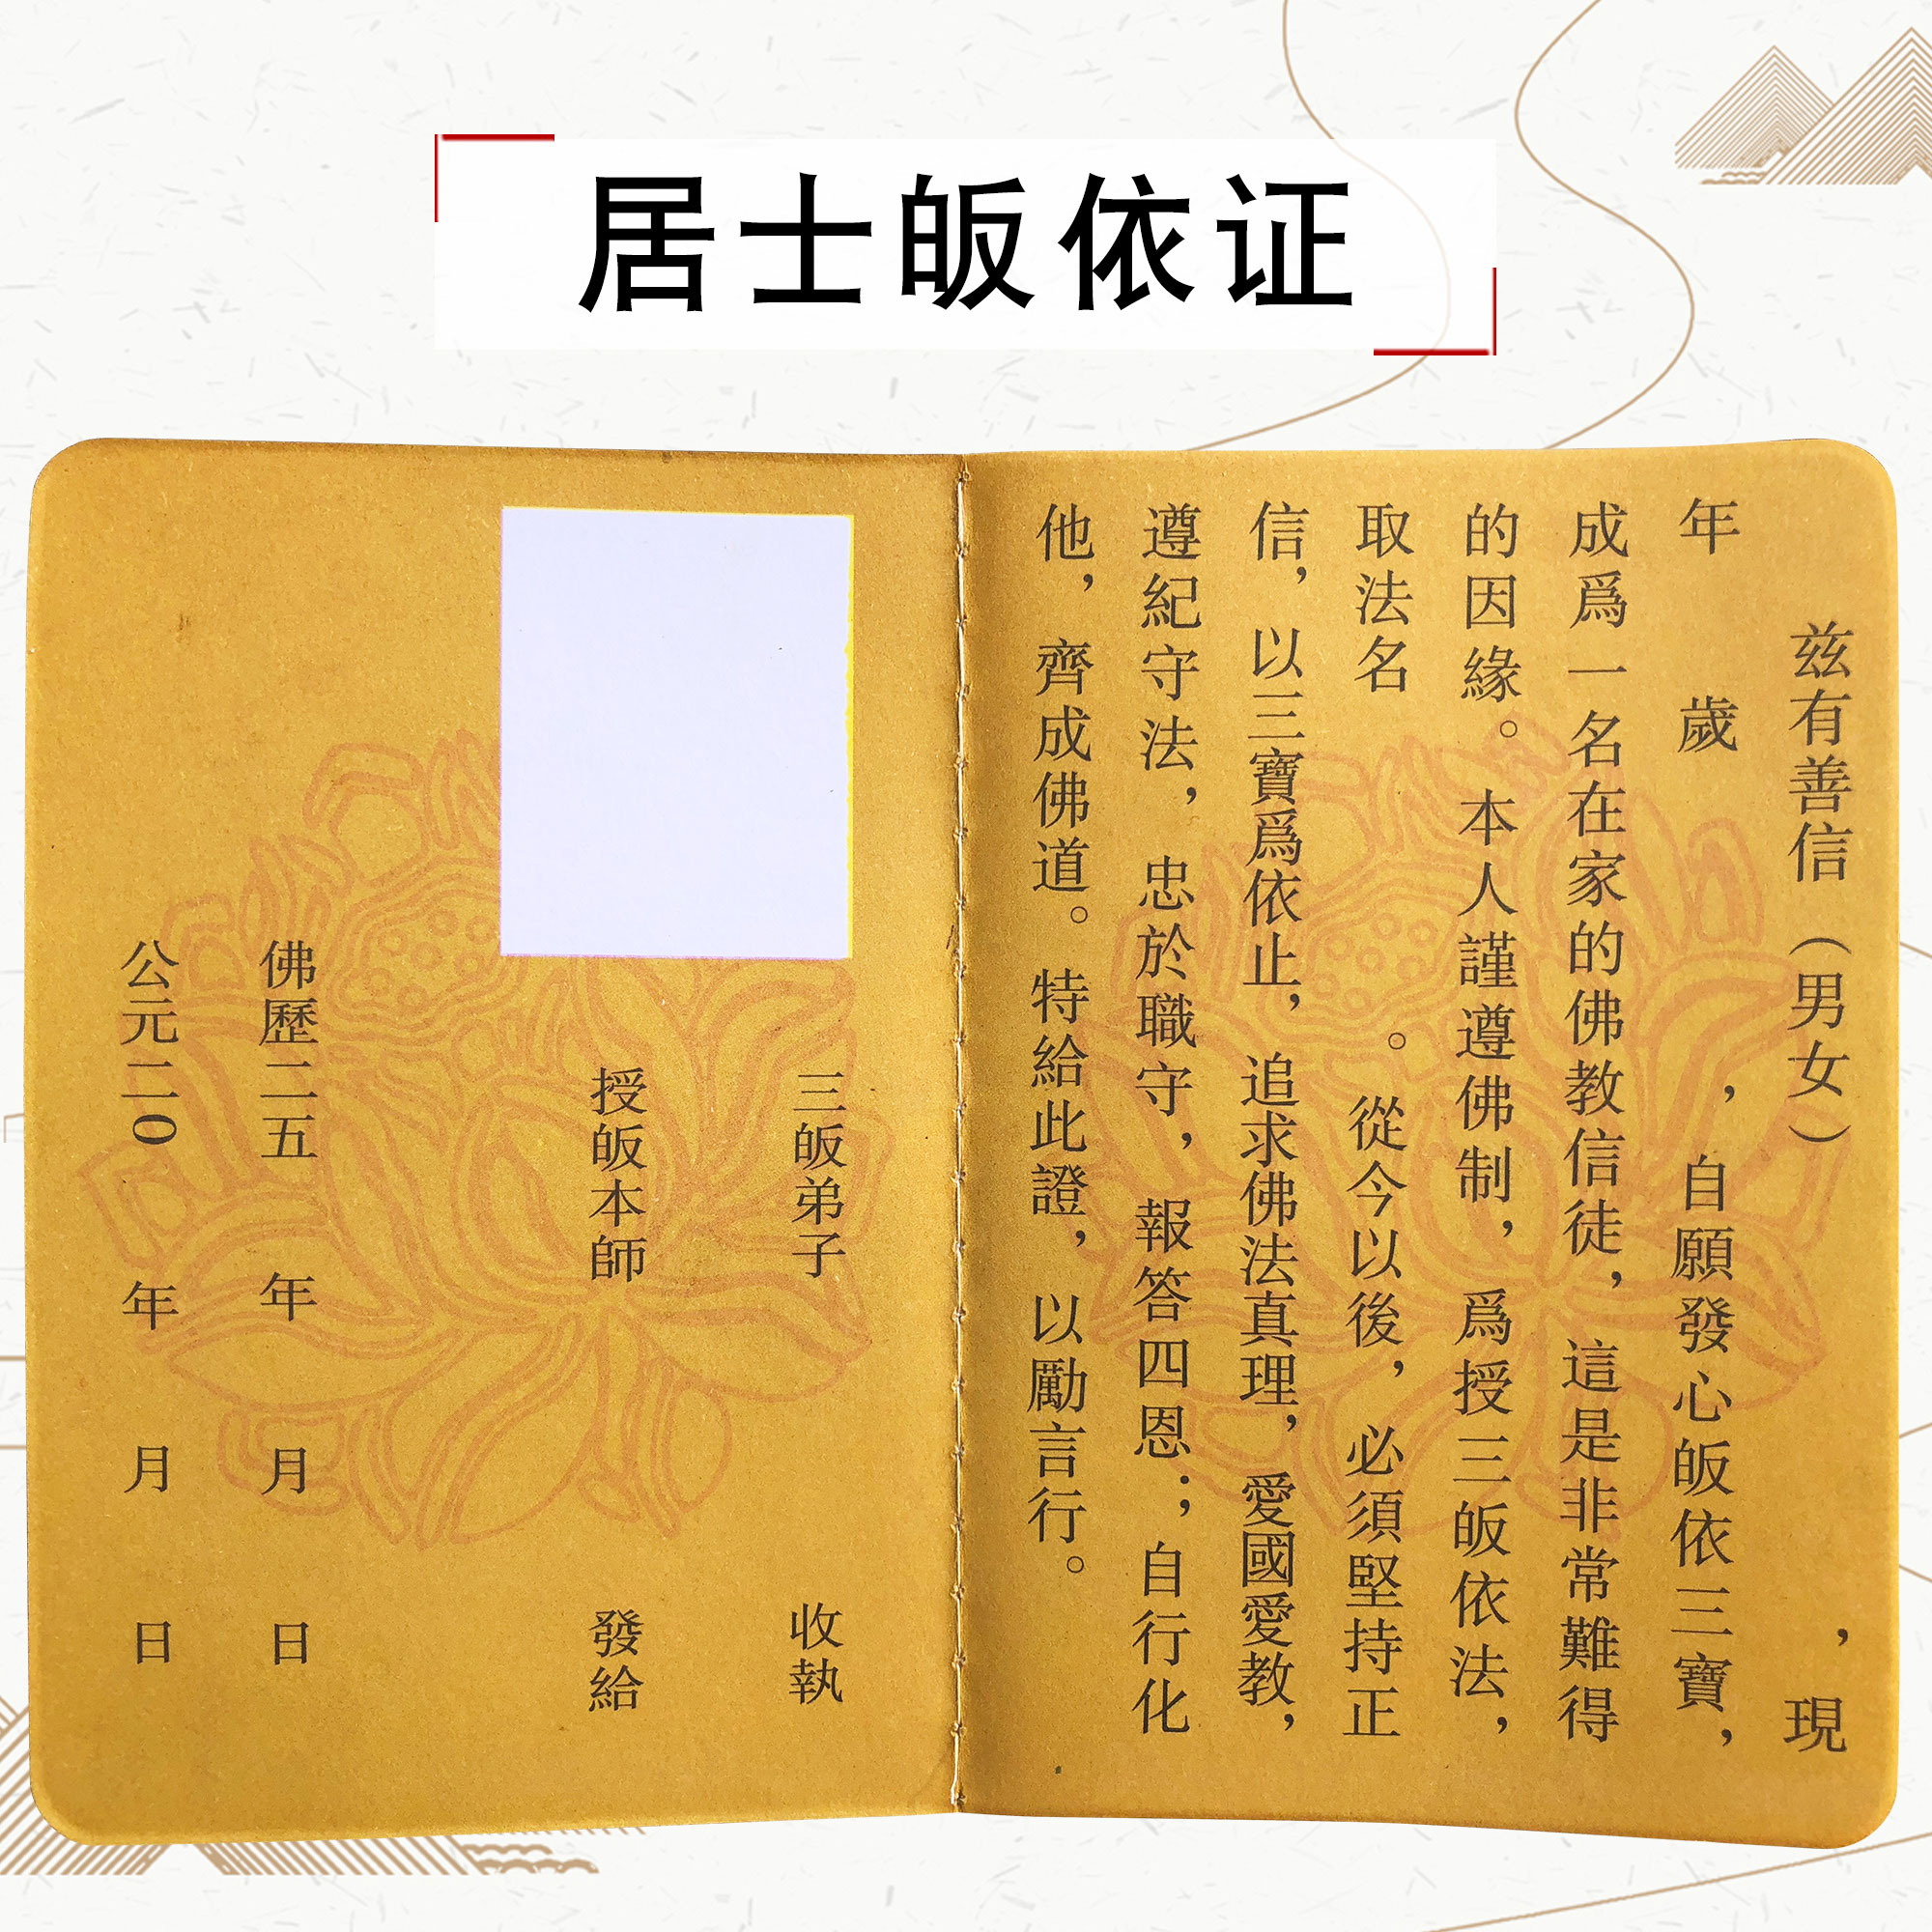 居士皈依证
兹有善信（男女），現
年歲，自願發心皈依三寶，
成爲一名在家的佛教信徒，這是非常難得
的因緣。本人謹遵佛制，爲授三皈依法，
取法名。從今以後，必須堅持正
信，以三寶爲依止，追求佛法真理，愛國愛教，
遵紀守法，忠於職守，報答四恩；自行化
他，齊成佛道。特給此證，以勵言行。
三皈弟子收執
授皈本師發給
佛歷二五年月日
公元二0年月日